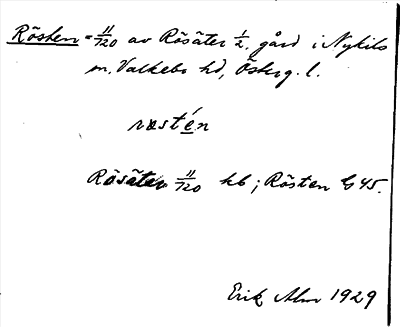 Rösten = 11/120 av Rösäter 1/2, gård i Nykils
sn, Valkebo hd, Österg. l.
røstén
Rösäter 11/120 kb; Rösten G 45.
Erik Alm 1929